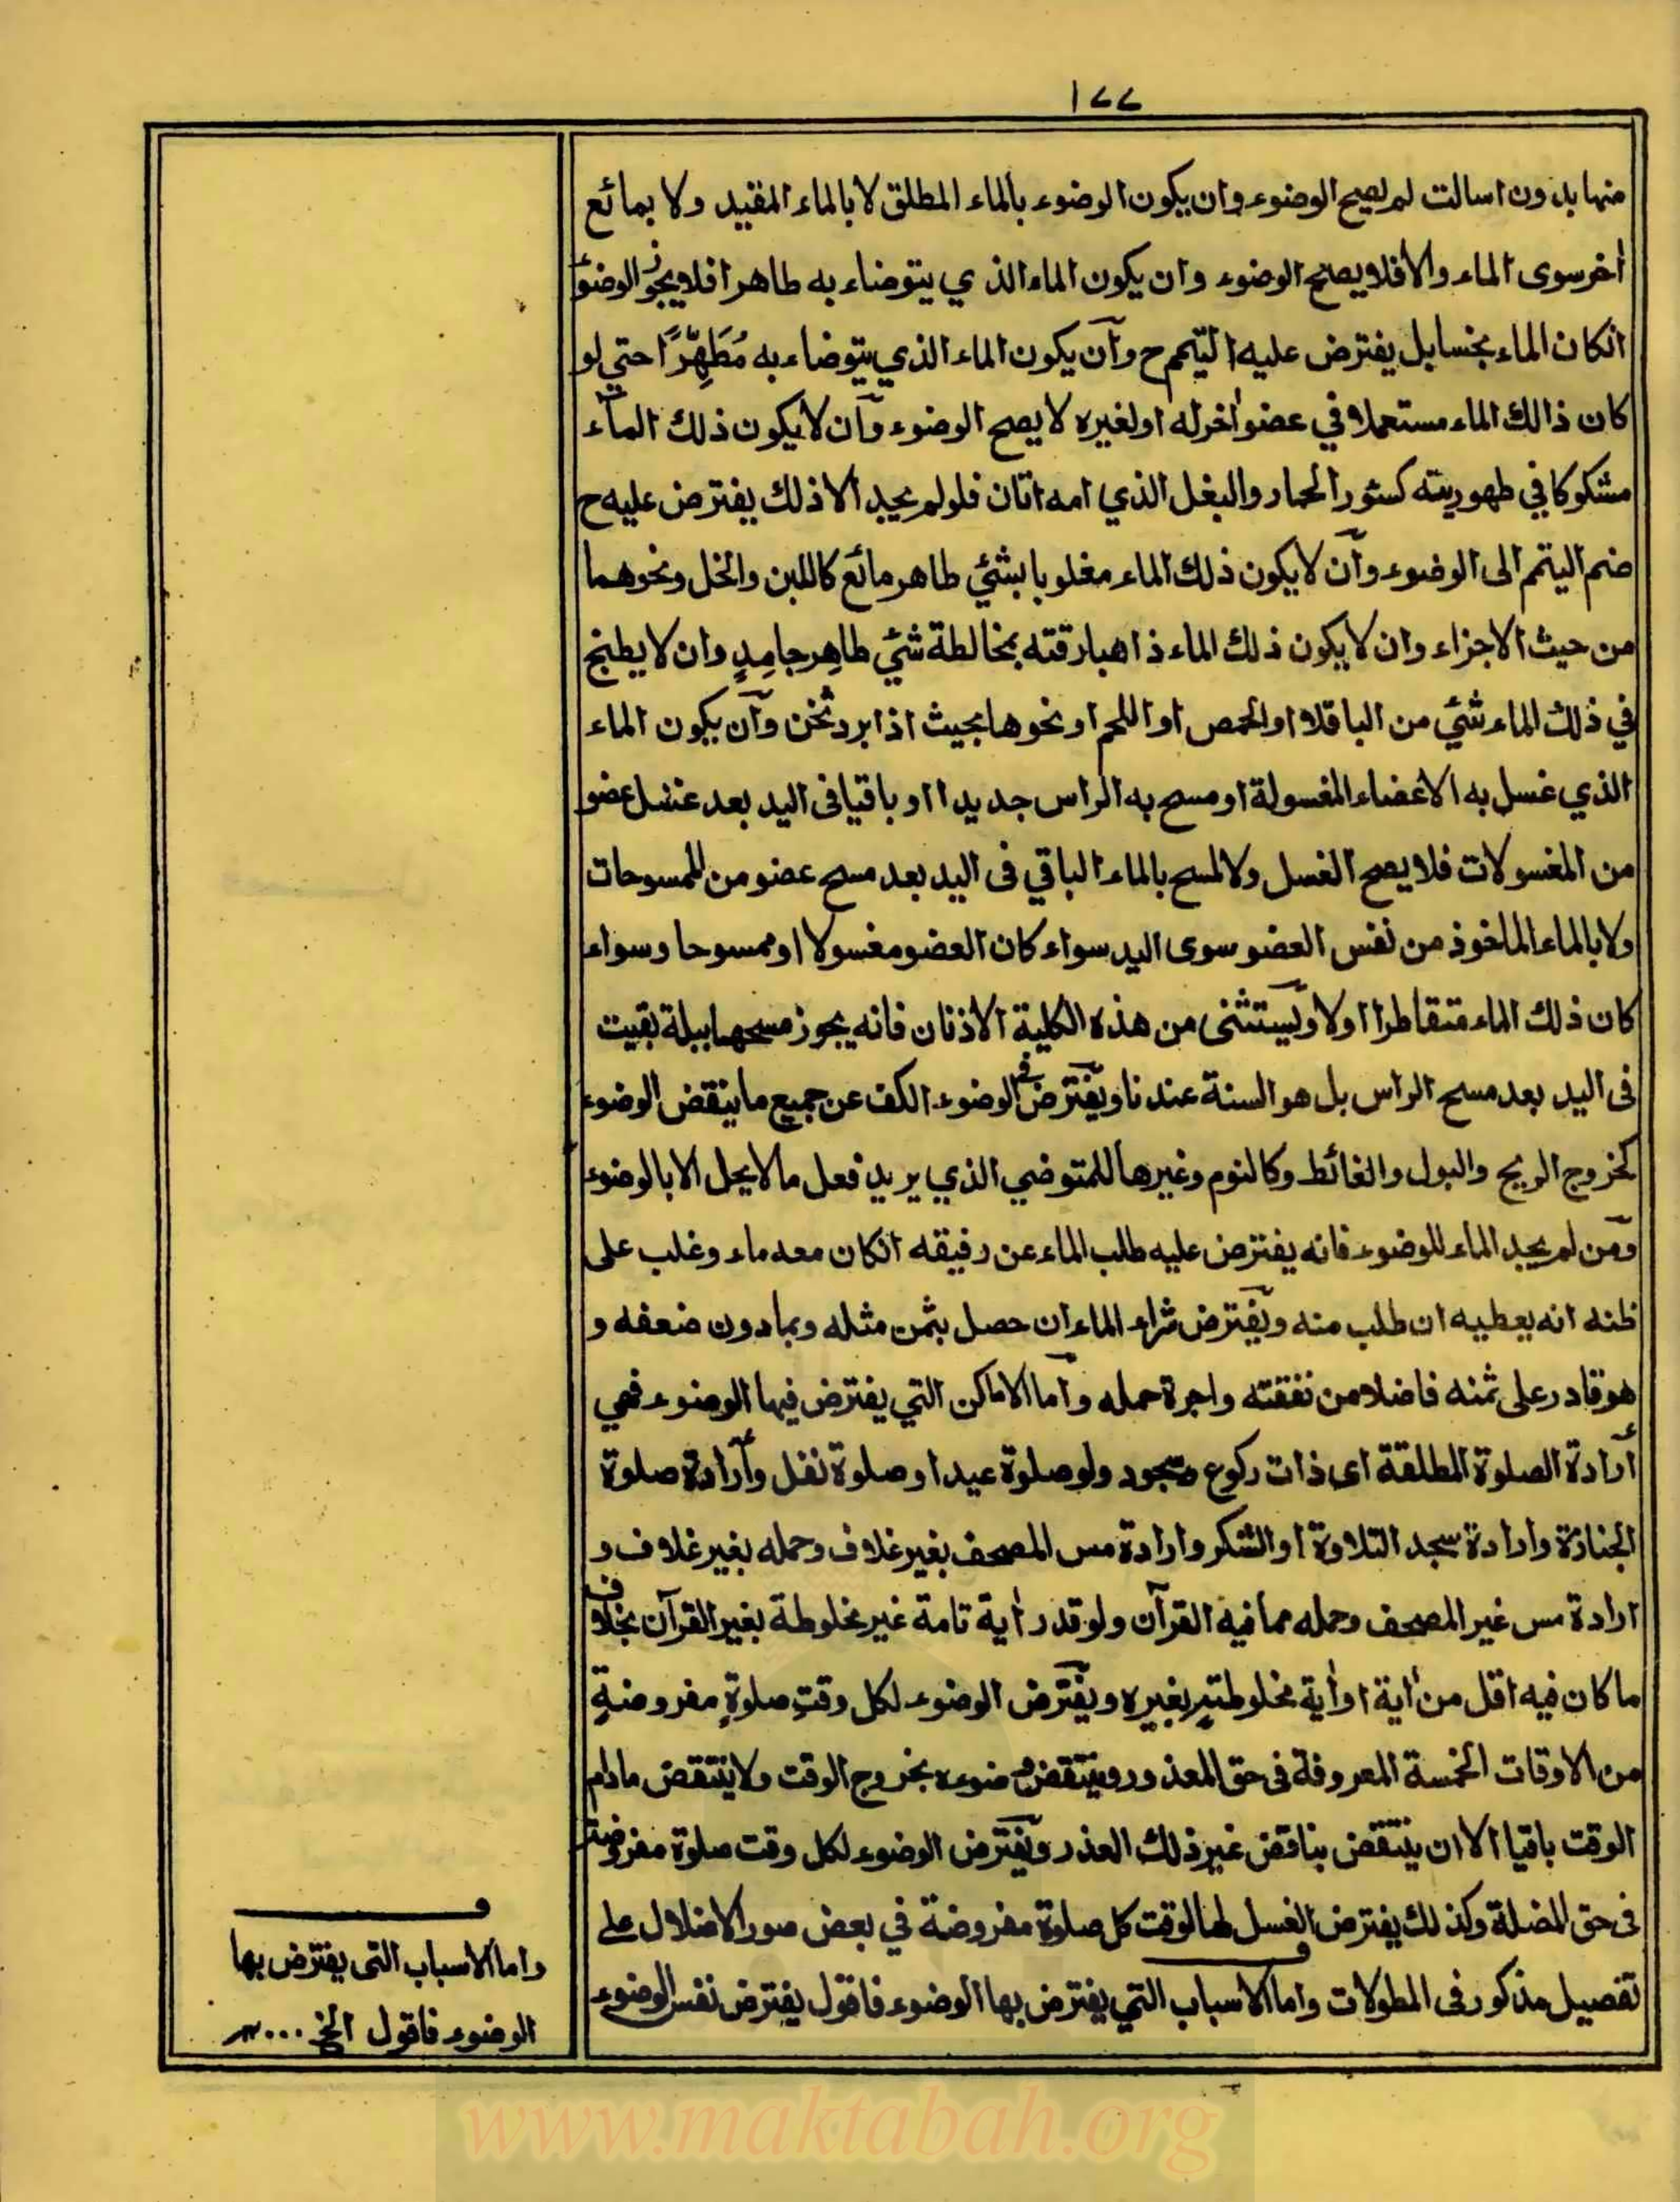 ١٧٧
منها بدون اسالت لم يصح الوضوء وان يكون الوضوء بالماء المطلق لا بالماء المقيد ولا بمائع
أخر سوى الماء والا فلا يصح الوضوء وان يكون الماء الذي يتوضاء به طاهرا فلا يجوز الوضوء
انكان الماء نجسا بل يفترض عليه التيمم ح وآن يكون الماء الذي يتوضاء به مُطَهِّرًا حتي لو
كان ذالك الماء مستعملا في عضو أخر له او لغيره لا يصح الوضوء وآن لا يكون ذلك الماء
مشكوكا في طهوريته كسئور الحمار والبغل الذي امه اتان فلو لم يجد الا ذلك يفترض عليه ح
ضم اليتمم الى الوضوء وآن لا يكون ذلك الماء مغلوبا بشئي طاهر مائع كاللبن والخل ونحوهما
من حيث الاجزاء وان لا يكون ذلك الماء ذاهبا رقته بمخالطة شئي طاهِرٍ جامِدٍ وان لا يطبخ
في ذلك الماء شئي من الباقلا او الحمص او اللحم او نحوها بحيث اذا برد ثخن وآن يكون الماء
الذي غسل به الاعضاء المغسولة او مسح به الراس جديدا او باقيا فى اليد بعد غسل عضو
من المغسولات فلا يصح الغسل ولا المسح بالماء الباقي فى اليد بعد مسح عضو من الممسوحات
ولا بالماء الماخوذ من نفس العضو سوى اليد سواء كان العضو مغسولا او ممسوحا وسواء
كان ذلك الماء متقاطرا اولا ويستثنى من هذه الكلية الاذنان فانه يجوز مسحهما ببلة بقيت
فى اليد بعد مسح الراس بل هو السنة عندنا ويفترض في الوضوء الكف عن جميع ما ينقض الوضوء
كخروج الريح والبول والغائط وكالنوم وغيرها للمتوضي الذي يريد فعل ما لا يحل الا بالوضوء
ومن لم يجد الماء للوضوء فانه يفترض عليه طلب الماء عن رفيقه انكان معه ماء وغلب على
ظنه انه يعطيه ان طلب منه ويفترض شراء الماء ان حصل بثمن مثله وبما دون ضعفه و
هو قادر على ثمنه فاضلا من نفقته واجرة حمله وآما الاماكن التي يفترض فيها الوضوء فهي
أرادة الصلوة المطلقة اى ذات ركوع وسجود ولو صلوة عيد او صلوة نفل وأرادة صلوة
الجنازة وارادة سجد التلاوة او الشكر وارادة مس المصحف بغير غلاف وحمله بغير غلاف و
ارادة مس غير المصحف وحمله مما فيه القرآن ولو قدر أية تامة غير مخلوطة بغير القرآن بخلاف
ما كان فيه اقل من أية او أية مخلوطتہٍ بغيره ويفترض الوضوء لكل وقتِ صلوةٍ مفروضةٍ
من الاوقات الخمسة المعروفة فى حق المعذور وينتقض وضوءه بخروج الوقت ولا ينتقض مادام
الوقت باقيا الا ان ينتقض بناقض غير ذلك العذر ويفترض الوضوء لكل وقت صلوة مفروضة
فى حق المضلة وكذلك يفترض الغسل لها لوقت كل صلوة مفروضة في بعض صور الاضلال على
تفصيل مذكور فى المطولات واما الاسباب التي يفترض بها الوضوء فاقول يفترض نفس الوضوء
واما الاسباب التى يفترض بها
الوضوء فاقول الخ
www.maktabah.org